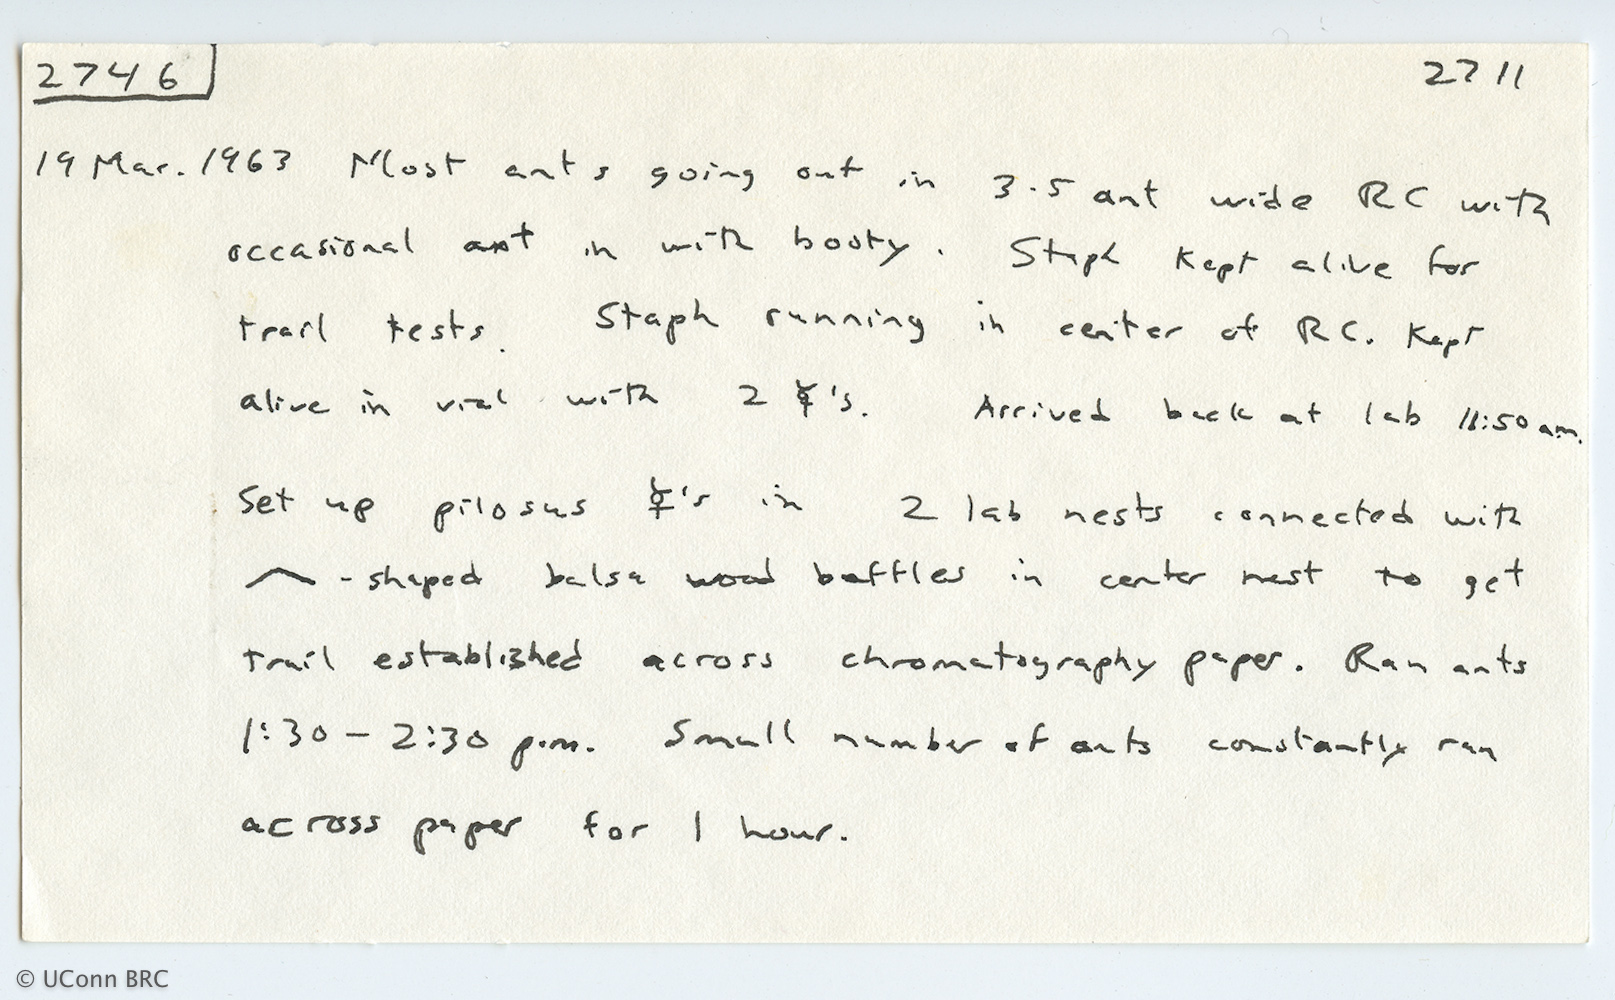 2746
2711
19 Mar. 1963 Most ants going out in 3-5 ant wide RC with
occasional ant in with booty. Staph Kept alive for
trail tests. Staph running in center of RC. Kept
alive in vial with 2 ☿'s. Arrived back at lab 11:50 am.
Set up pilosus ☿'s in 2 lab nests connected with
︿-shaped balsa wood baffles in center nest to get
trail established across chromatography paper. Ran ants
1:30 – 2:30 p.m. Small number of ants constantly ran
across paper for 1 hour.
© UConn BRC